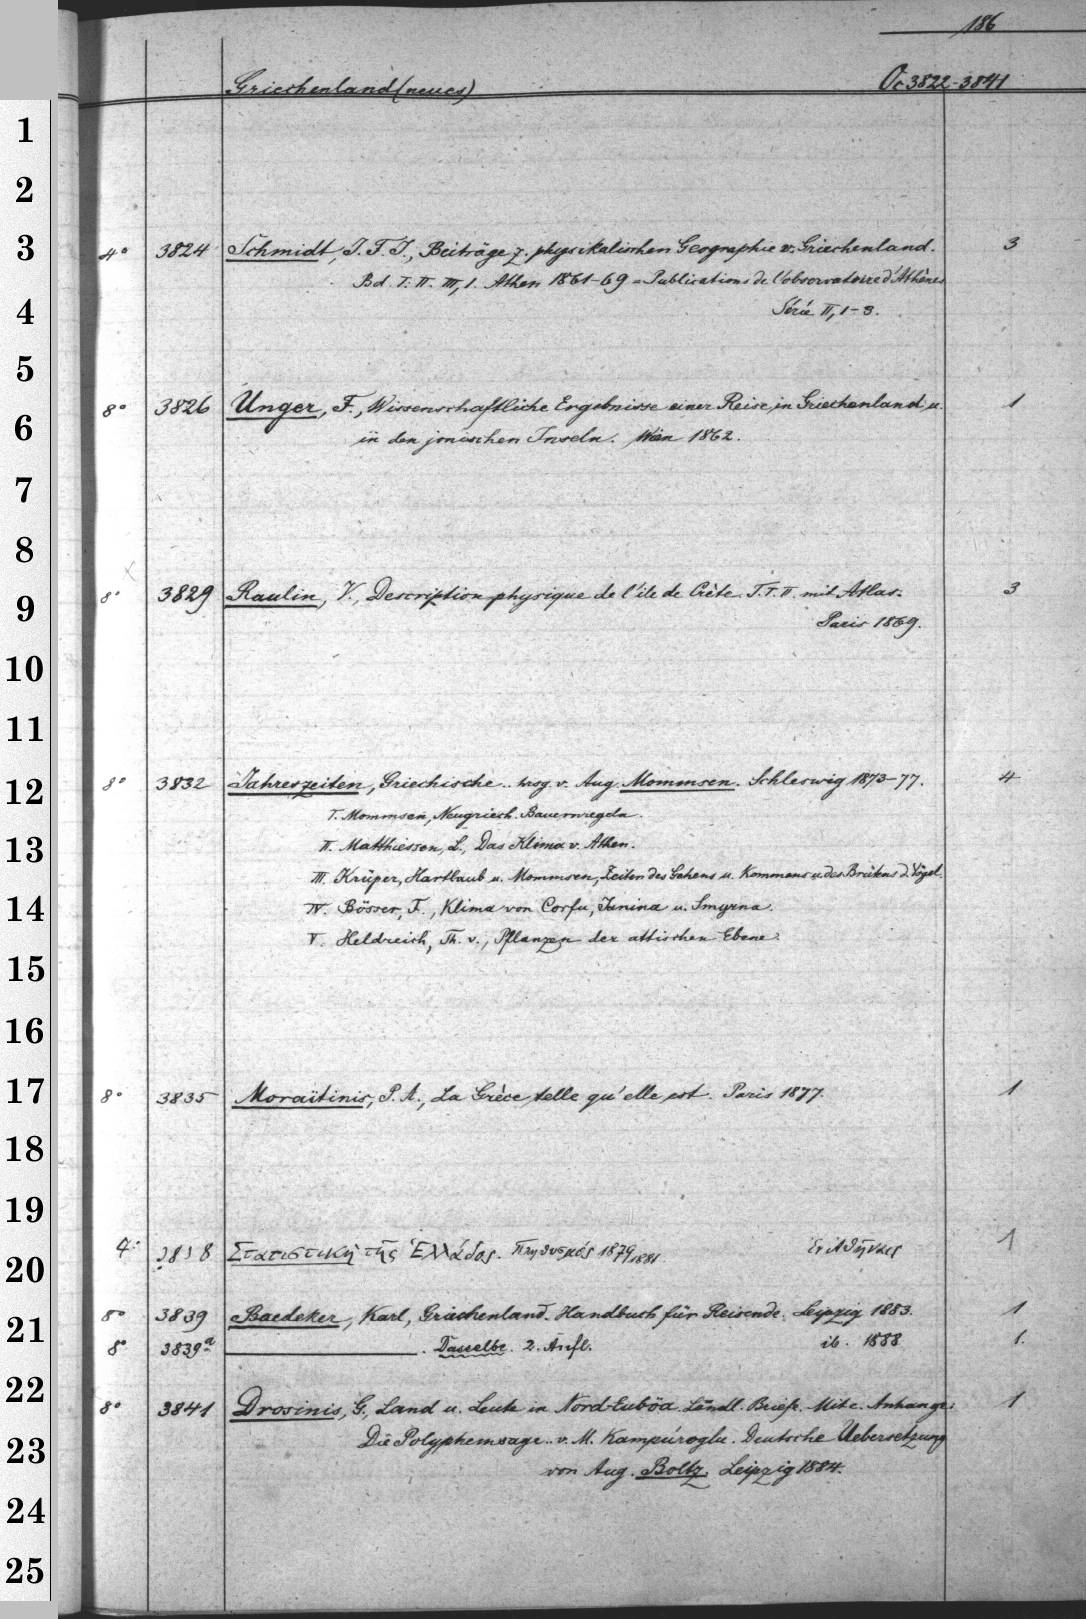 186
Griechenland (neues) Oc 3822-3841
1
2
3
4° 3824 Schmidt, J. F. J., Beiträge z. physikalischen Geographie v. Griechenland. 3
Bd. I. II. III, 1. Athen 1861-69 = Publications de l'observatoire d'Athènes
4
Série II, 1-3.
5
8° 3826 Unger, F., Wissenschaftliche Ergebnisse einer Reise in Griechenland u. 1
6
in den jonischen Inseln. Wien 1862.
7
8
8° 3829 Raulin, V., Description physique de l'île de Crète. T. I. II. mit Atlas. 3
9
Paris 1869.
10
11
8° 3832 Jahreszeiten, Griechische.. hrsg. v. Aug. Mommsen. Schleswig 1873-77. 4
12
I. Mommsen, Neugriech. Bauernregeln.
13
II. Matthiessen, L., Das Klima v. Athen.
III. Krüper, Hartlaub u. Mommsen, Zeiten des Gehens u. Kommens u. des Brütens d. Vögel.
14
IV. Bösser, F., Klima von Corfu, Janina u. Smyrna.
V. Heldreich, Th. v., Pflanzen der attischen Ebene.
15
16
17
8° 3835 Moraïtinis, P. A., La Grèce telle qu'elle est. Paris 1877. 1
18
19
4° 3838 Στατιστικὴ τῆς Ἑλλάδος. Πληθυσμός 1879 1881 Ἐν Ἀθήναις 1
20
8° 3839 Baedeker, Karl, Griechenland. Handbuch für Reisende. Leipzig 1883. 1
21
8° 3839a . Dasselbe. 2. Aufl. ib. 1888 1.
22
8° 3841 Drosinis, G., Land u. Leute in Nord-Euböa. Ländl. Briefe. Mit e. Anhange: 1
Die Polyphemsage.. v. M. Kampúroglu. Deutsche Uebersetzung
23
von Aug. Boltz. Leipzig 1884.
24
25